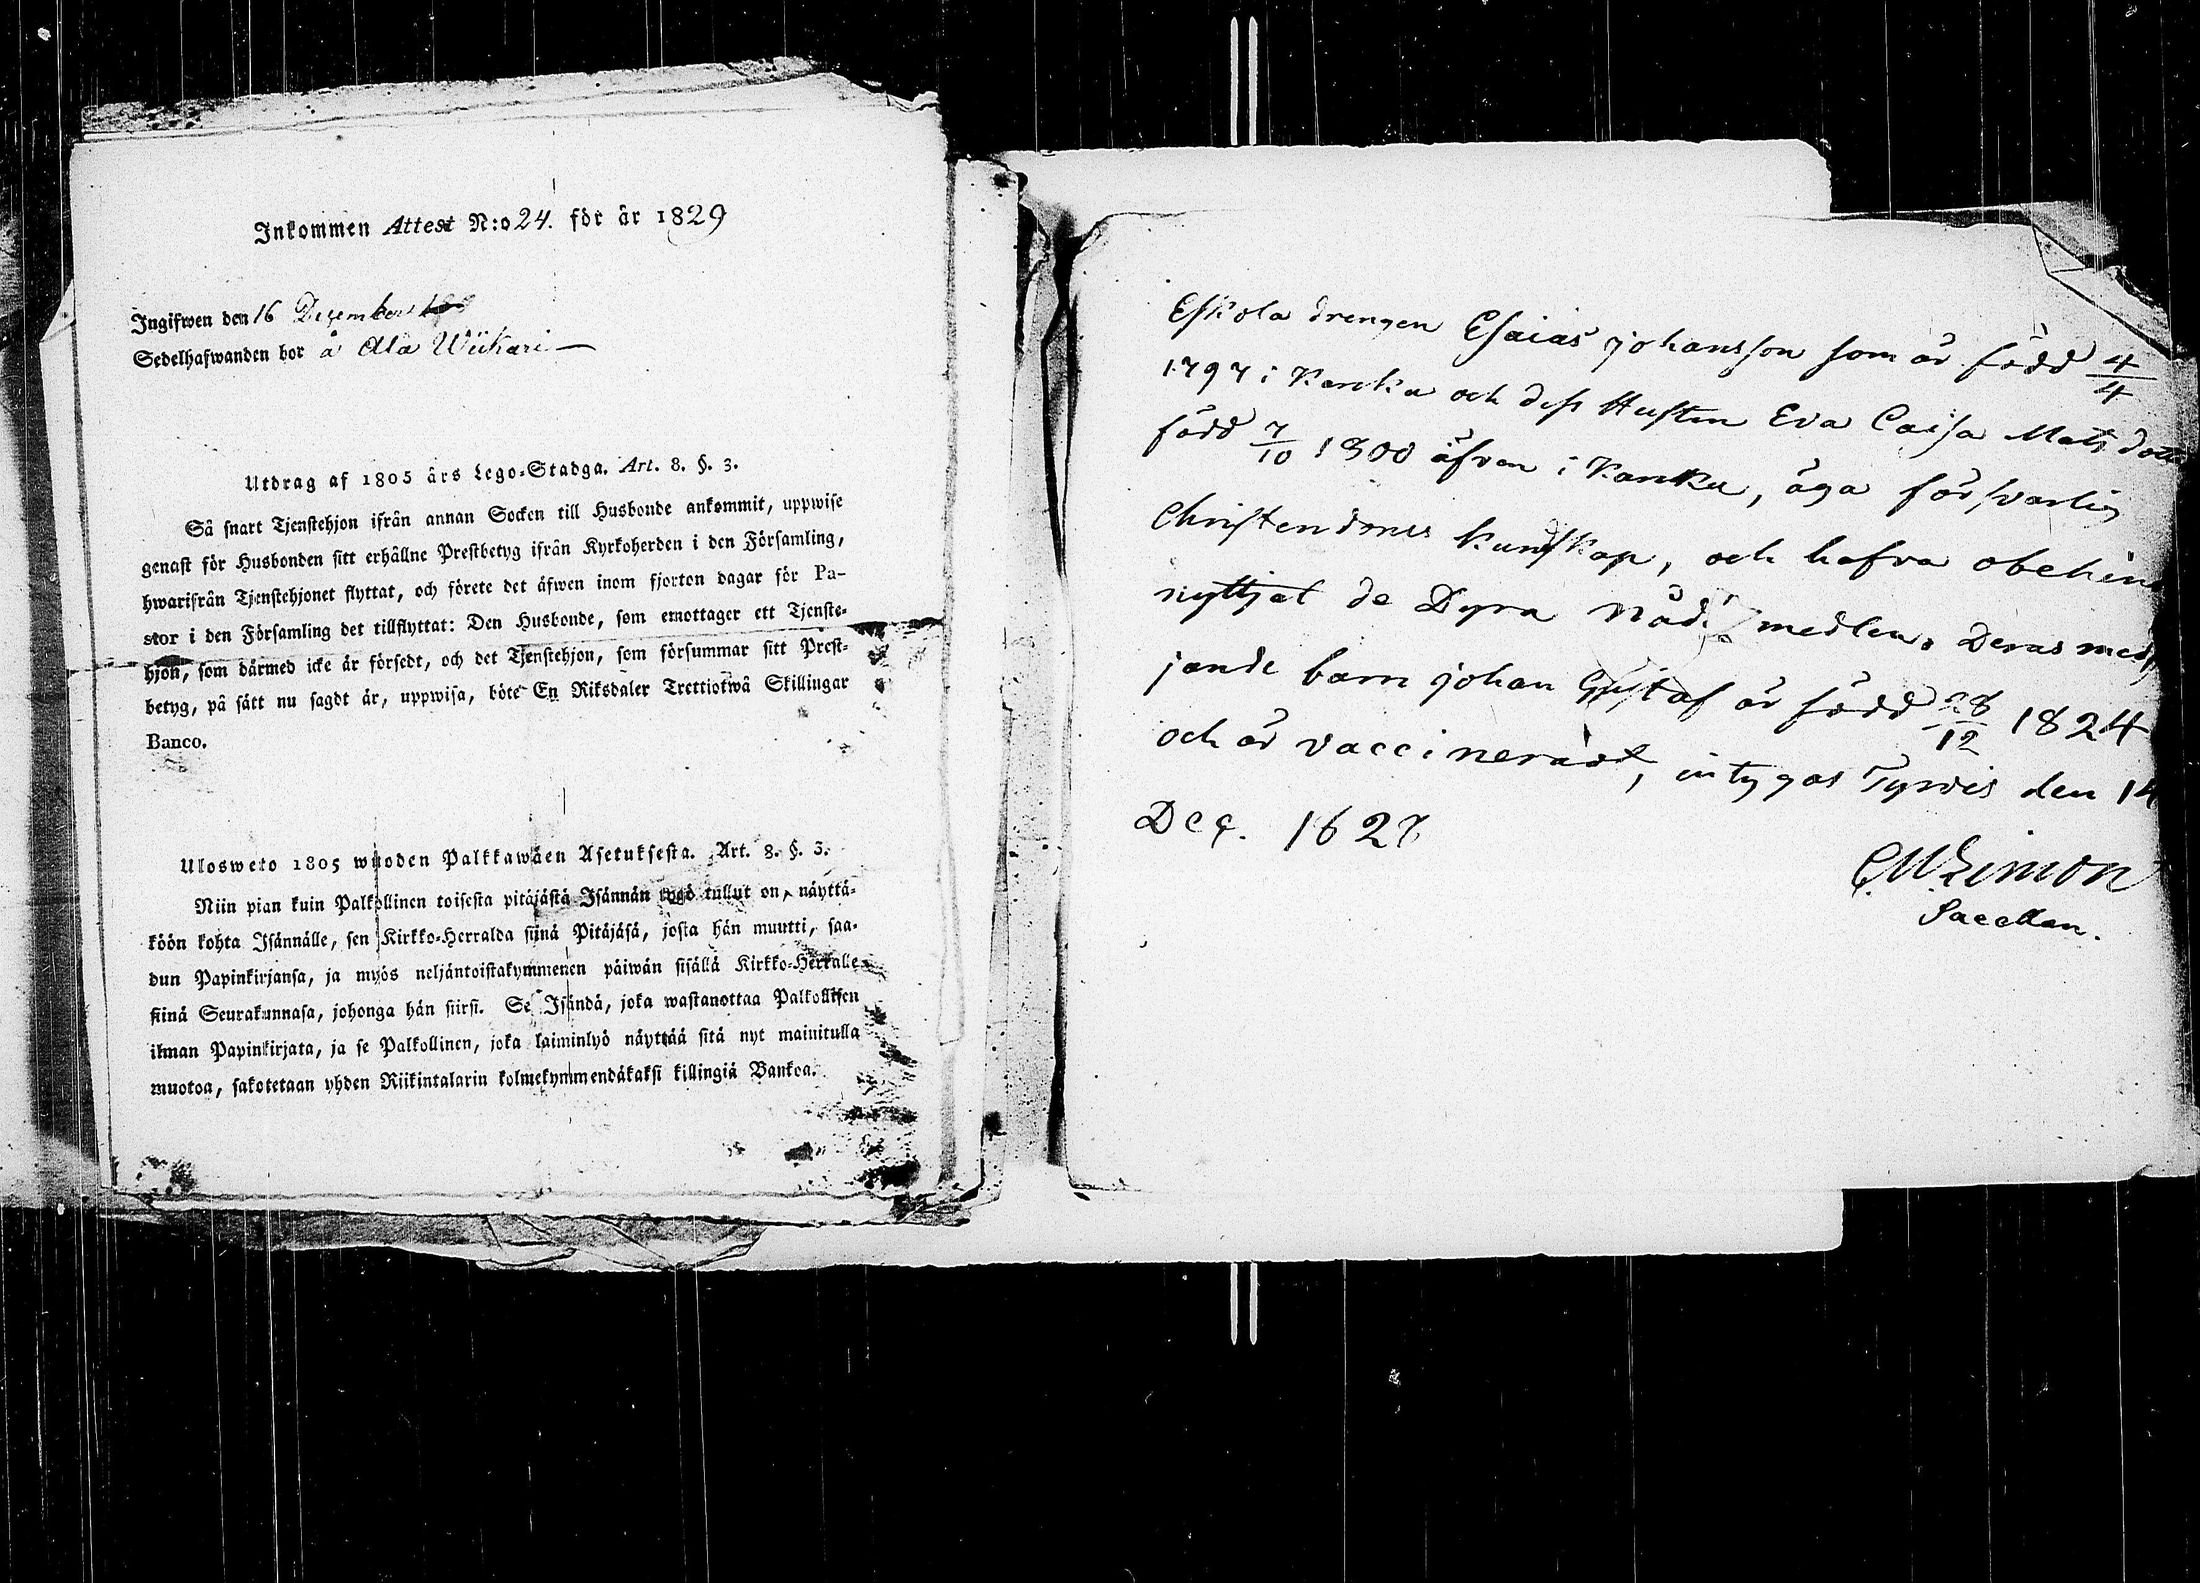 Inkommen Attest N:o 24. för år 1829
Ingifwen den 16 December
Sedelhafwanden bor å Ala Wiikari
Utdrag af 1805 års Lego-Stadga. Art. 8. §. 3.
Så snart Tjenstehjon ifrån annan Socken till Husbonde ankommit, uppwise
genast för Husbonden sitt erhållne Prestbetyg ifrån Kyrkoherden i den Församling,
hwarifrån Tjenstehjonet flyttat, och förete det äfwen inom fjorton dagar för Pa-
stor i den Församling det tillflyttat: Den Husbonde, som emottager ett Tjenste-
hjon, som därmed icke är försedt, och det Tjenstehjon, som försummar sitt Prest-
betyg, på sätt nu sagdt är, uppwisa, böte En Riksdaler Trettiotwå Skillingar
Banco.
Ulosweto 1805 wuoden Palkkawäen Asetuksesta. Art. 8. §. 3.
Niin pian kuin Palkollinen toisesta pitäjästä Isännän tygö tullut on, näyttä-
köön kohta Isännälle, sen Kirkko-Herralda siinä Pitäjäsä, josta hän muutti, saa-
dun Papinkirjansa, ja myös neljäntoistakymmenen päiwän sisällä Kirkko-Herralle
siinä Seurakunnasa, johonga hän siirsi. Se Isändä, joka wastanottaa Palkollisen
ilman Papinkirjata, ja se Palkollinen, joka laiminlyö näyttää sitä nyt mainitulla
muotoa, sakotetaan yhden Riikintalarin kolmekymmendäkaksi killingiä Bankoa.
Eskola drengen Esaias johansson som är född 4/4
1797 i Karcku och dess Hustru Eva Caisa Mats dotter
född 7/10 1800 äfven i Karcku, äga försvarlig
Christendoms kunskap, och hafva obehind
nyttjat de Dyra Nådemedlen. Deras medföl
jande barn johan Gustaf är född 28/12 1824
och är vaccinerad, intygas Tyrvis den 14
Dec. 1827
C. M. Limon
Sacellan.